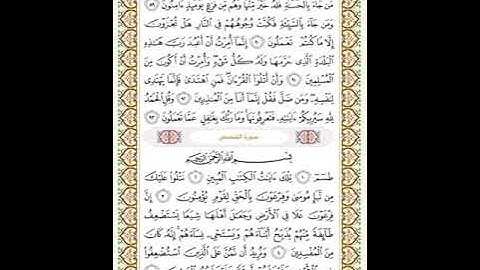 مَن جَآءَ بِٱلْحَسَنَةِ فَلَهُۥ خَيْرٌ مِّنْهَا وَهُم مِّن فَزَعٍ يَوْمَئِذٍ ءَامِنُونَ ٨٩
وَمَن جَآءَ بِٱلسَّيِّئَةِ فَكُبَّتْ وُجُوهُهُمْ فِى ٱلنَّارِ هَلْ تُجْزَوْنَ
إِلَّا مَا كُنتُمْ تَعْمَلُونَ ٩٠ إِنَّمَآ أُمِرْتُ أَنْ أَعْبُدَ رَبَّ هَـٰذِهِ
ٱلْبَلْدَةِ ٱلَّذِى حَرَّمَهَا وَلَهُۥ كُلُّ شَىْءٍ وَأُمِرْتُ أَنْ أَكُونَ مِنَ
ٱلْمُسْلِمِينَ ٩١ وَأَنْ أَتْلُوَا۟ ٱلْقُرْءَانَ فَمَنِ ٱهْتَدَىٰ فَإِنَّمَا يَهْتَدِى
لِنَفْسِهِۦ وَمَن ضَلَّ فَقُلْ إِنَّمَآ أَنَا۠ مِنَ ٱلْمُنذِرِينَ ٩٢ وَقُلِ ٱلْحَمْدُ
لِلَّهِ سَيُرِيكُمْ ءَايَـٰتِهِۦ فَتَعْرِفُونَهَا وَمَا رَبُّكَ بِغَـٰفِلٍ عَمَّا تَعْمَلُونَ ٩٣
سورة القصص
بِسْمِ ٱللَّهِ ٱلرَّحْمَـٰنِ ٱلرَّحِيمِ
طسٓمٓ ١ تِلْكَ ءَايَـٰتُ ٱلْكِتَـٰبِ ٱلْمُبِينِ ٢ نَتْلُوا۟ عَلَيْكَ
مِن نَّبَإِ مُوسَىٰ وَفِرْعَوْنَ بِٱلْحَقِّ لِقَوْمٍ يُؤْمِنُونَ ٣ إِنَّ
فِرْعَوْنَ عَلَا فِى ٱلْأَرْضِ وَجَعَلَ أَهْلَهَا شِيَعًا يَسْتَضْعِفُ
طَآئِفَةً مِّنْهُمْ يُذَبِّحُ أَبْنَآءَهُمْ وَيَسْتَحْىِۦ نِسَآءَهُمْ إِنَّهُۥ كَانَ
مِنَ ٱلْمُفْسِدِينَ ٤ وَنُرِيدُ أَن نَّمُنَّ عَلَى ٱلَّذِينَ ٱسْتُضْعِفُوا۟